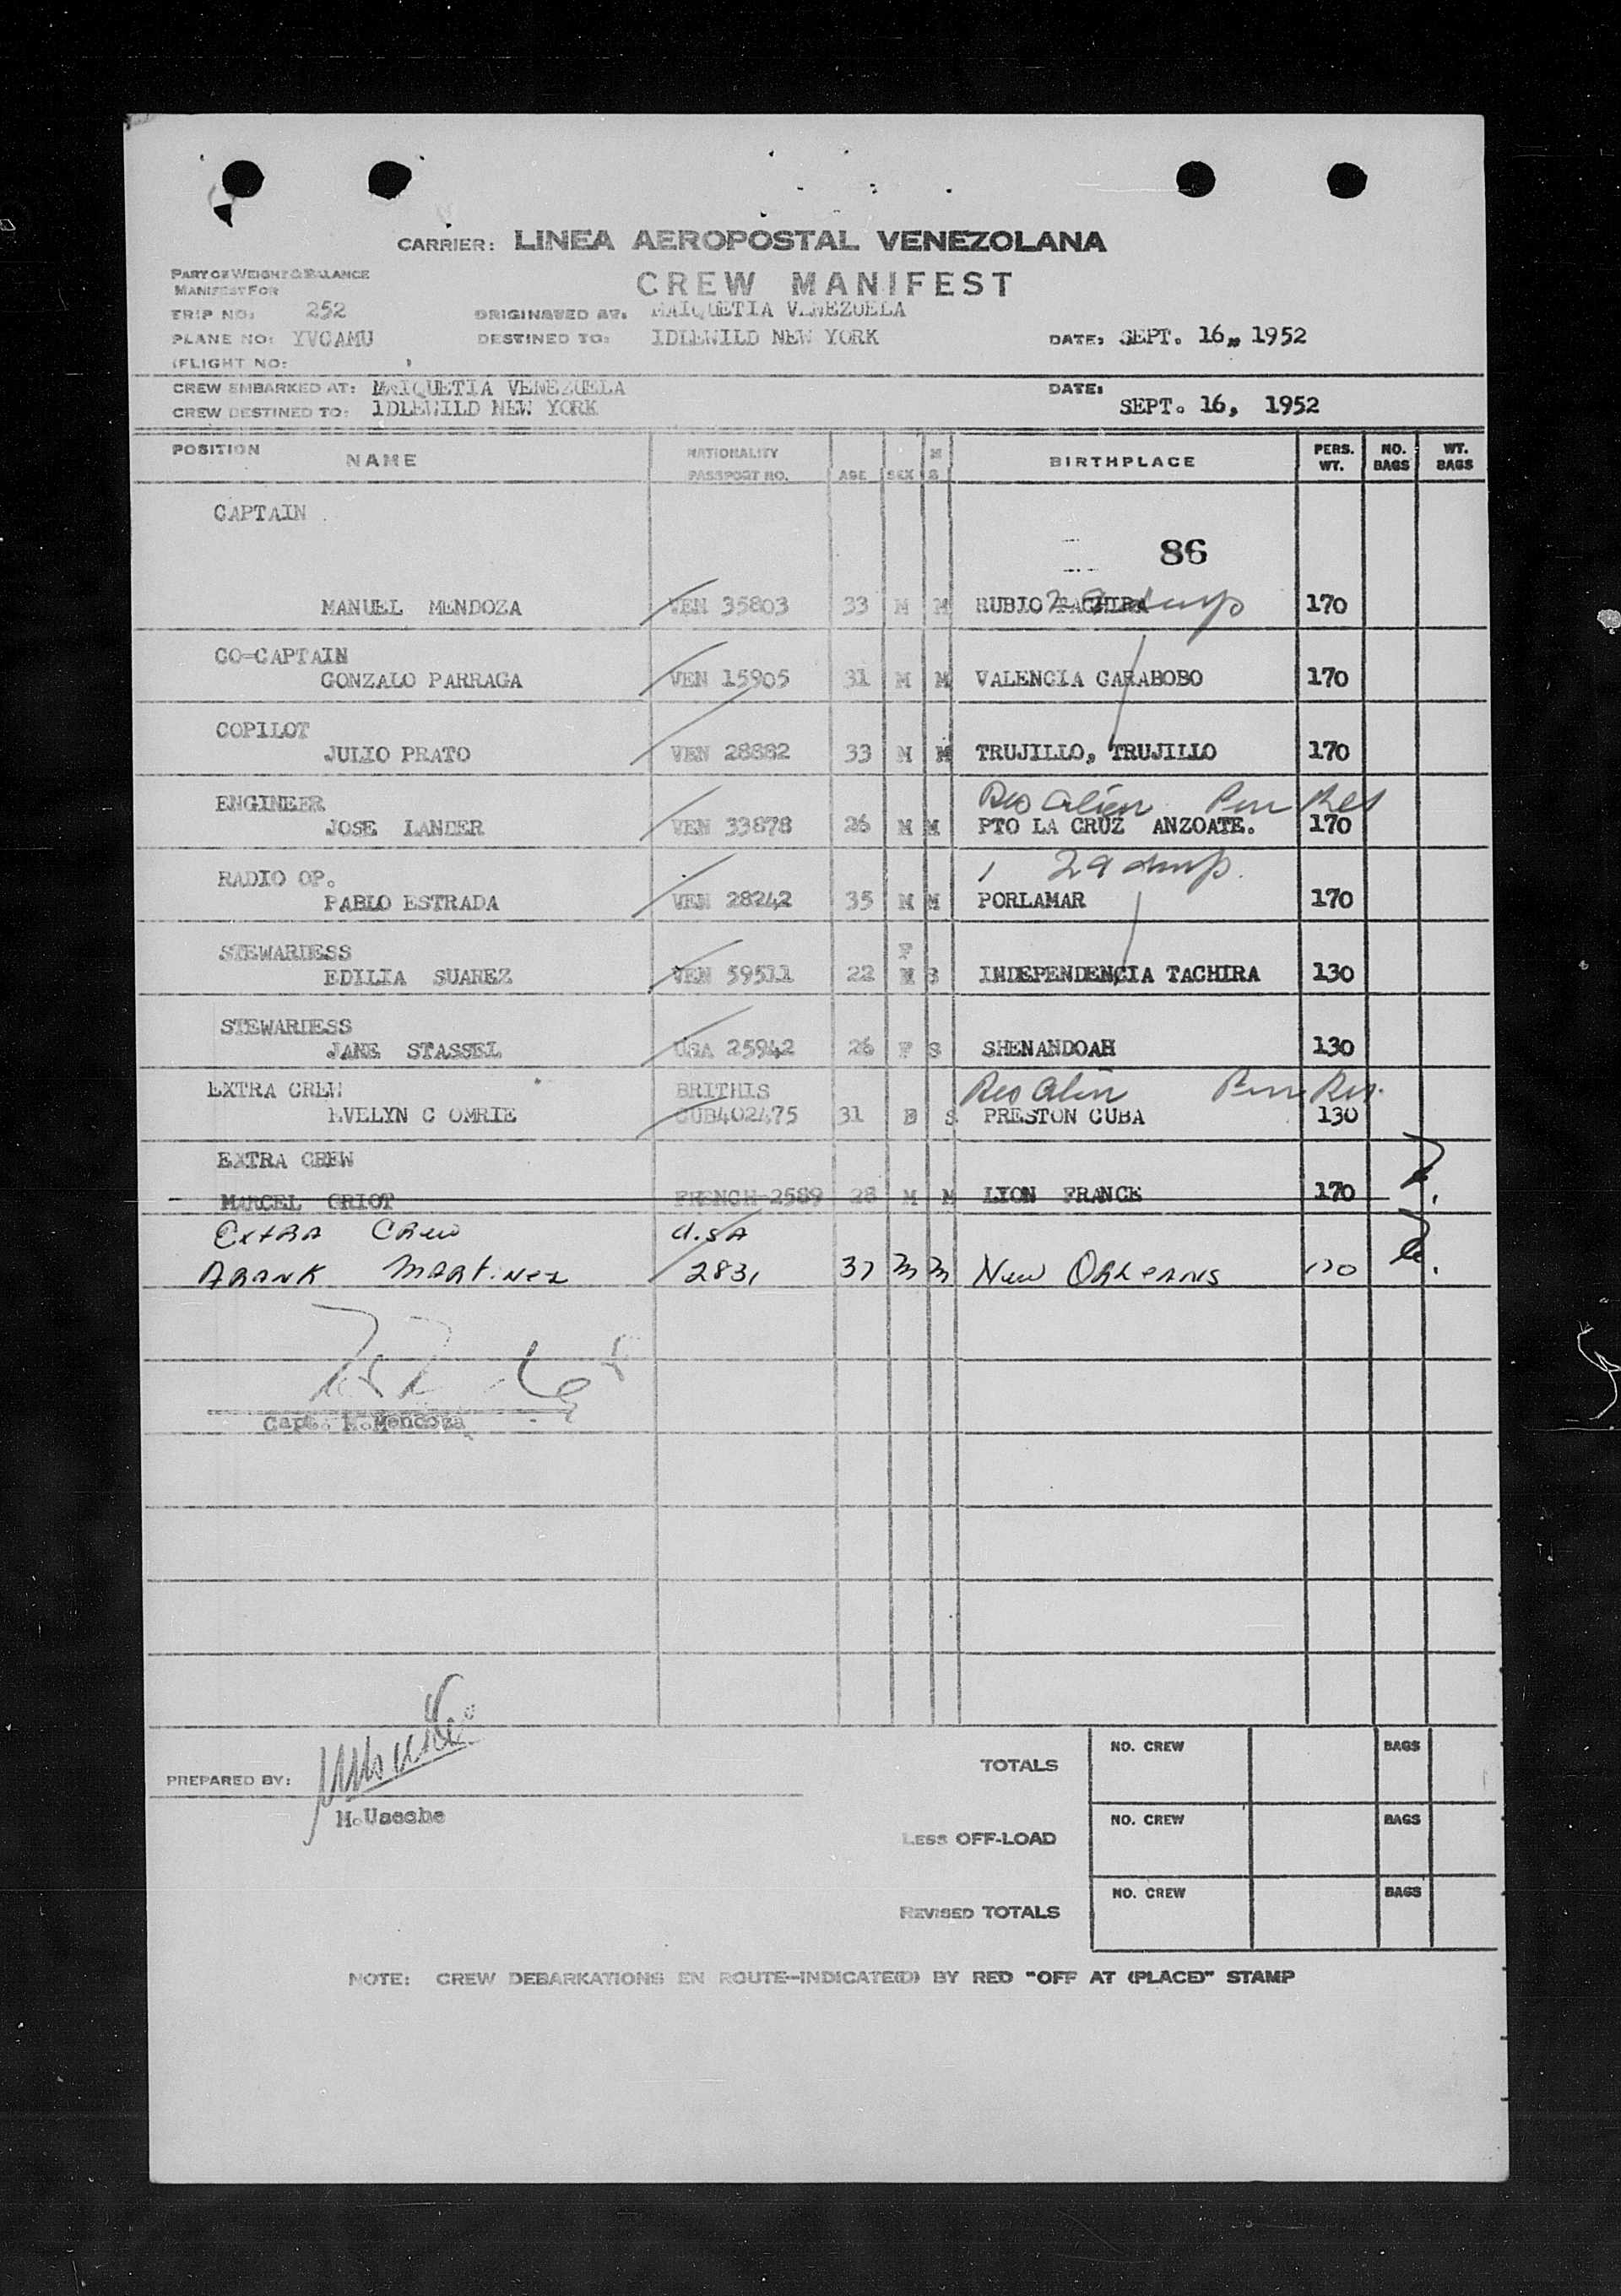 CARRIER: LINEA AEROPOSTAL VENEZOLANA
PART OF WEIGHT & BALANCE
MANIFEST FOR
CREW MANIFEST
TRIP NO: 252 ORIGINATED AT: MAIQUETIA VENEZUELA
PLANE NO: YVCAMU DESTINED TO: IDLEWILD NEW YORK DATE: SEPT. 16, 1952
(FLIGHT NO:
CREW EMBARKED AT: MAIQUETIA VENEZUELA DATE:
CREW DESTINED TO: IDLEWILD NEW YORK SEPT. 16, 1952
POSITION NAME NATIONALITY PASSPORT NO. AGE SEX M S BIRTHPLACE PERS. WT. NO. BAGS WT. BAGS
CAPTAIN
86
MANUEL MENDOZA VEN 35803 33 M M RUBIO TACHIRA 170
CO-CAPTAIN
GONZALO PARRAGA VEN 15905 31 M M VALENCIA CARABOBO 170
COPILOT
JULIO PRATO VEN 28882 33 M M TRUJILLO, TRUJILLO 170
ENGINEER Res Alien Perm Res
JOSE LANDER VEN 33878 26 M M PTO LA CRUZ ANZOATE. 170
RADIO OP. 29
PABLO ESTRADA VEN 28242 35 M M PORLAMAR 170
STEWARDESS F
EDILIA SUAREZ VEN 59511 22 M S INDEPENDENCIA TACHIRA 130
STEWARDESS
JANE STASSEL USA 25942 26 F S SHENANDOAH 130
EXTRA CREW BRITHIS Res Alien Perm Res.
EVELYN C OMRIE CUB402475 31 S PRESTON CUBA 130
EXTRA CREW
MARCEL GRIOT FRENCH 2589 28 M M LYON FRANCE 170
Extra Crew U.SA
FRANK MARTINEZ 2831 37 M M New ORLEANS 170
Capt. M.Mendoza
PREPARED BY:
M.Useche
TOTALS NO. CREW BAGS
LESS OFF-LOAD NO. CREW BAGS
REVISED TOTALS NO. CREW BAGS
NOTE: CREW DEBARKATIONS EN ROUTE-INDICATE(D) BY RED "OFF AT (PLACE)" STAMP